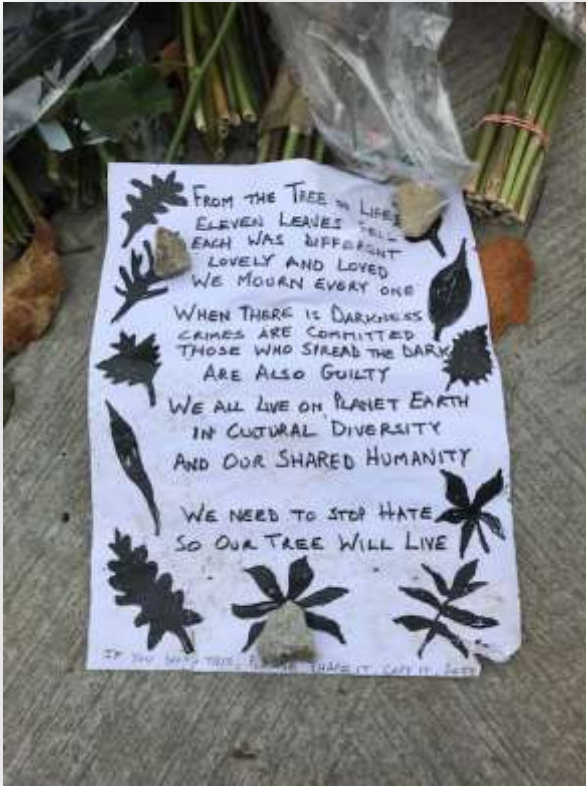 FROM THE TREE OF LIFE
ELEVEN LEAVES FELL
EACH WAS DIFFERENT
LOVELY AND LOVED
WE MOURN EVERY ONE
WHEN THERE IS DARKNESS
CRIMES ARE COMMITTED
THOSE WHO SPREAD THE DARK
ARE ALSO GUILTY
WE ALL LIVE ON PLANET EARTH
IN CULTURAL DIVERSITY
AND OUR SHARED HUMANITY
WE NEED TO STOP HATE
SO OUR TREE WILL LIVE
IF YOU THIS, PLEASE SHARE IT, COPY IT,